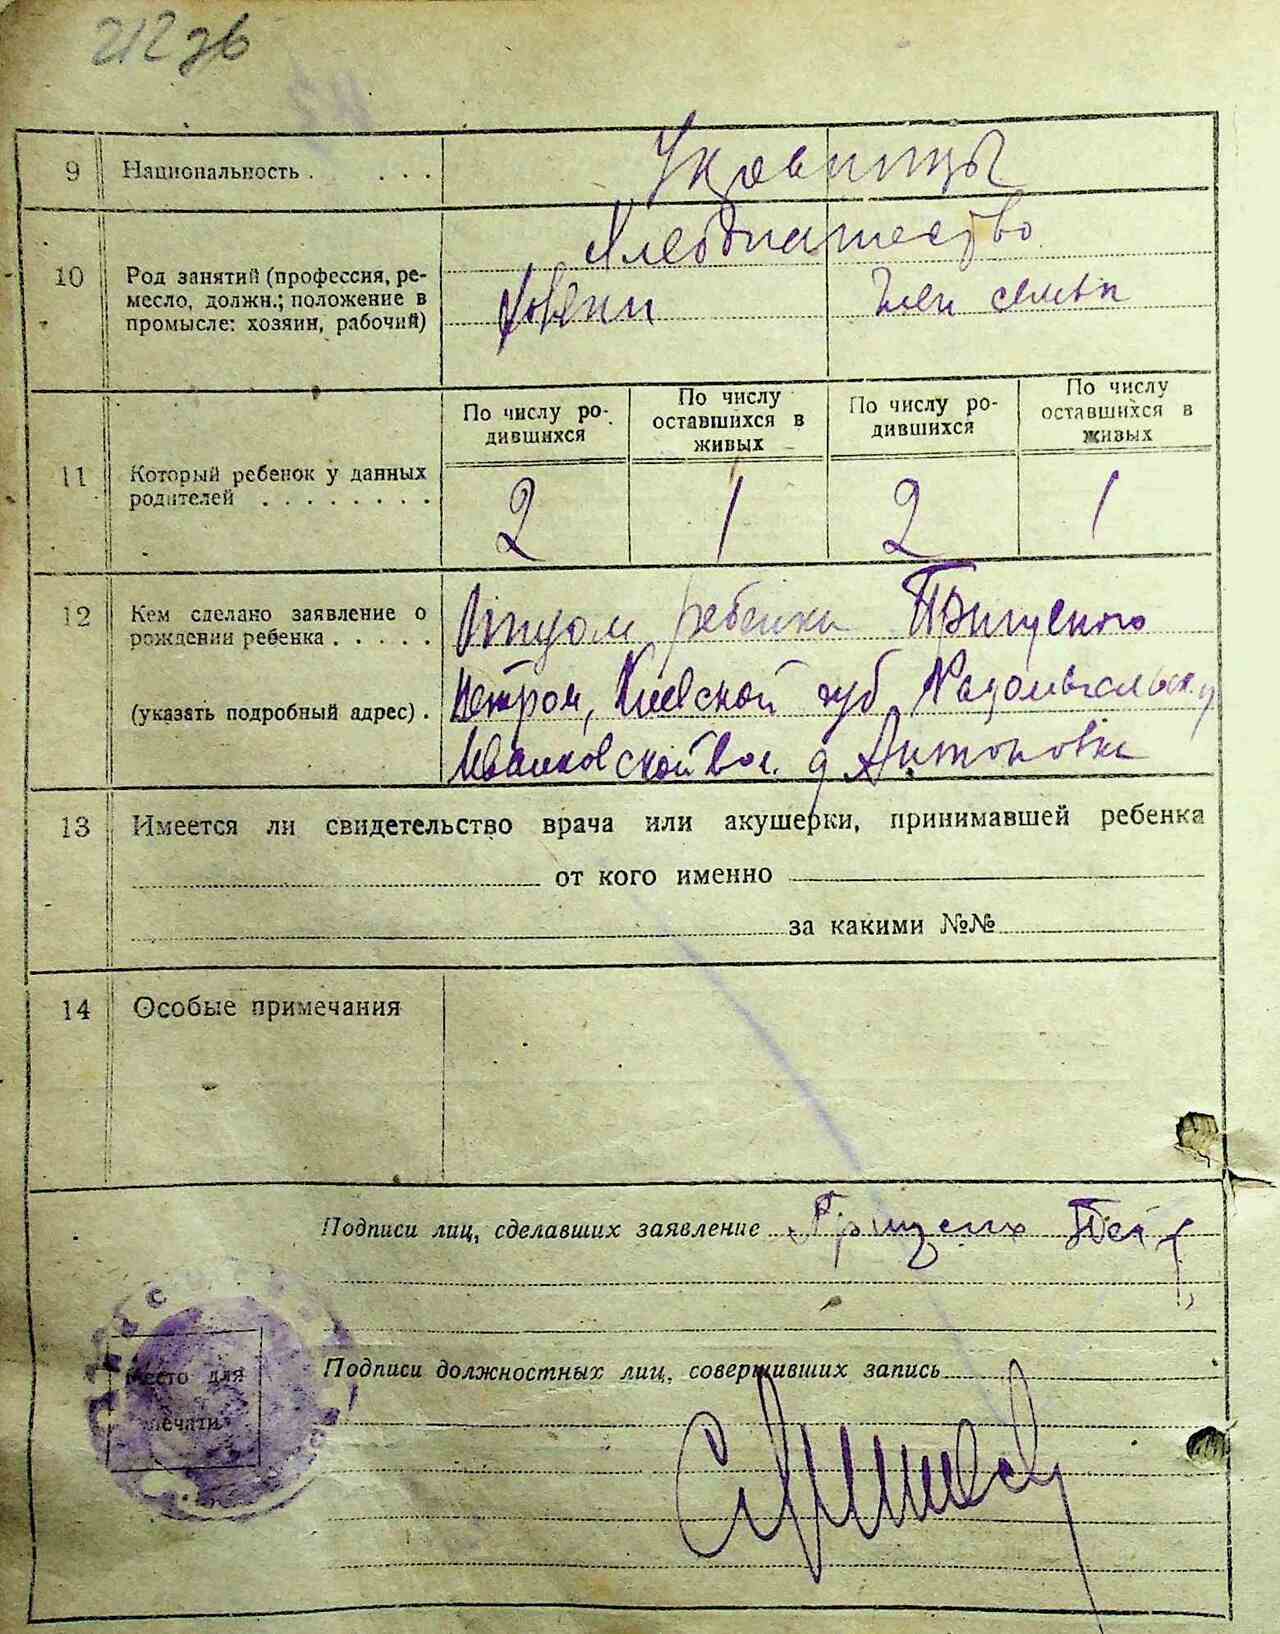 212 зв
9 Национальность . . . . Украинцы
Хлебопашество
10 Род занятий (профессия, ре-
месло, должн.; положение в
промысле: хозяин, рабочий)
Хозяин член семьи
По числу ро-
дившихся
По числу
оставшихся в
живых
По числу ро-
дившихся
По числу
оставшихся в
живых
11 Который ребенок у данных
родителей . . . . . . . .
2 1 2 1
12 Кем сделано заявление о
рождении ребенка . . . . .
(указать подробный адрес) .
Отцом ребенка
Петром, Киевской губ Радомысльск. у
Иванковской вол. д Антоновка
13 Имеется ли свидетельство врача или акушерки, принимавшей ребенка
от кого именно
за какими №№
14 Особые примечания
Подписи лиц, сделавших заявление Грицених Пет
Место для
печати
Подписи должностных лиц, совершивших запись